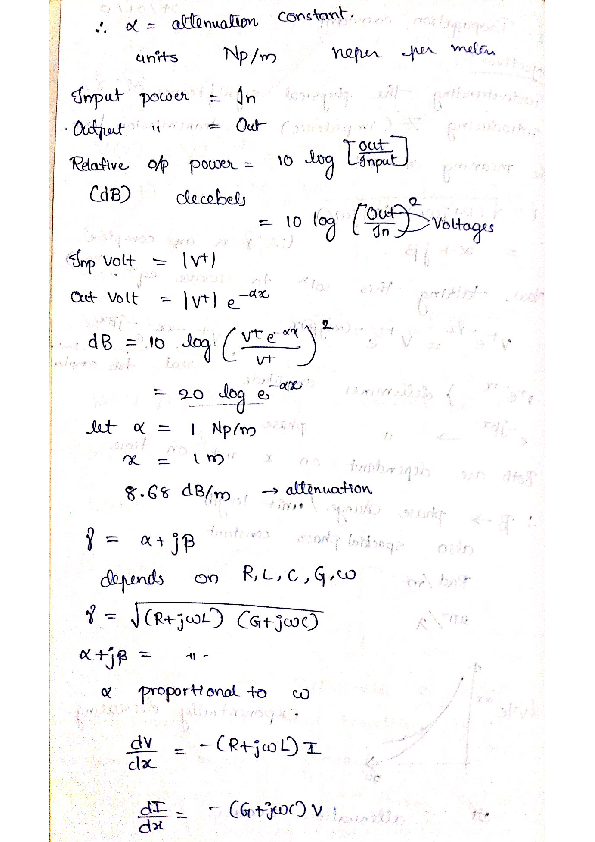 ∴ α = attenuation constant.
units Np/m neper per meter
Input power = In
Output " = Out
Relative o/p power = 10 log [out/Input]
(dB) decebels
= 10 log (Out/In)² Voltages
Inp volt = |V+|
Out Volt = |V+| e^-αx
dB = 10 log (V+ e^-αx / V+)²
= 20 log e^-αx
let α = 1 Np/m
x = 1 m
8.68 dB/m → attenuation
γ = α + jβ
depends on R, L, C, G, ω
γ = √(R+jωL) (G+jωC)
α + jβ = -11-
α proportional to ω
dV/dx = - (R+jωL) I
dI/dx = - (G+jωC) V